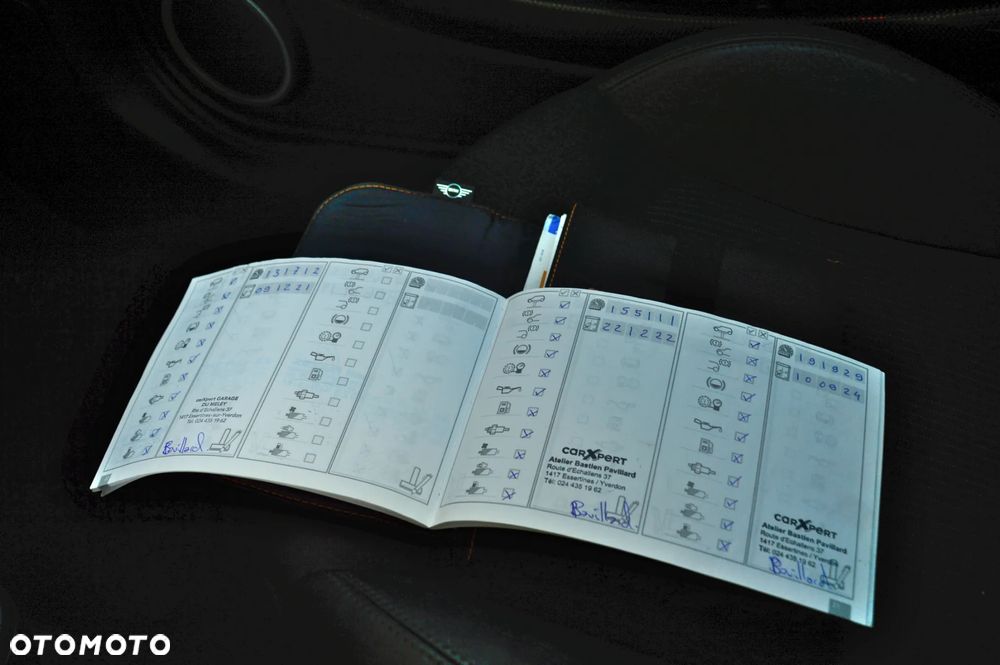 131712
091221
carXpert GARAGE
DU MELEY
Rte d'Echallens 37
1417 Essertines-sur-Yverdon
Tél. 024 435 19 62
155111
221222
carXpert
Atelier Bastien Pavillard
Route d'Echallens 37
1417 Essertines / Yverdon
Tél: 024 435 19 62
191929
100924
carXpert
Atelier Bastien Pavillard
Route d'Echallens 37
1417 Essertines / Yverdon
Tél: 024 435 19 62
OTOMOTO